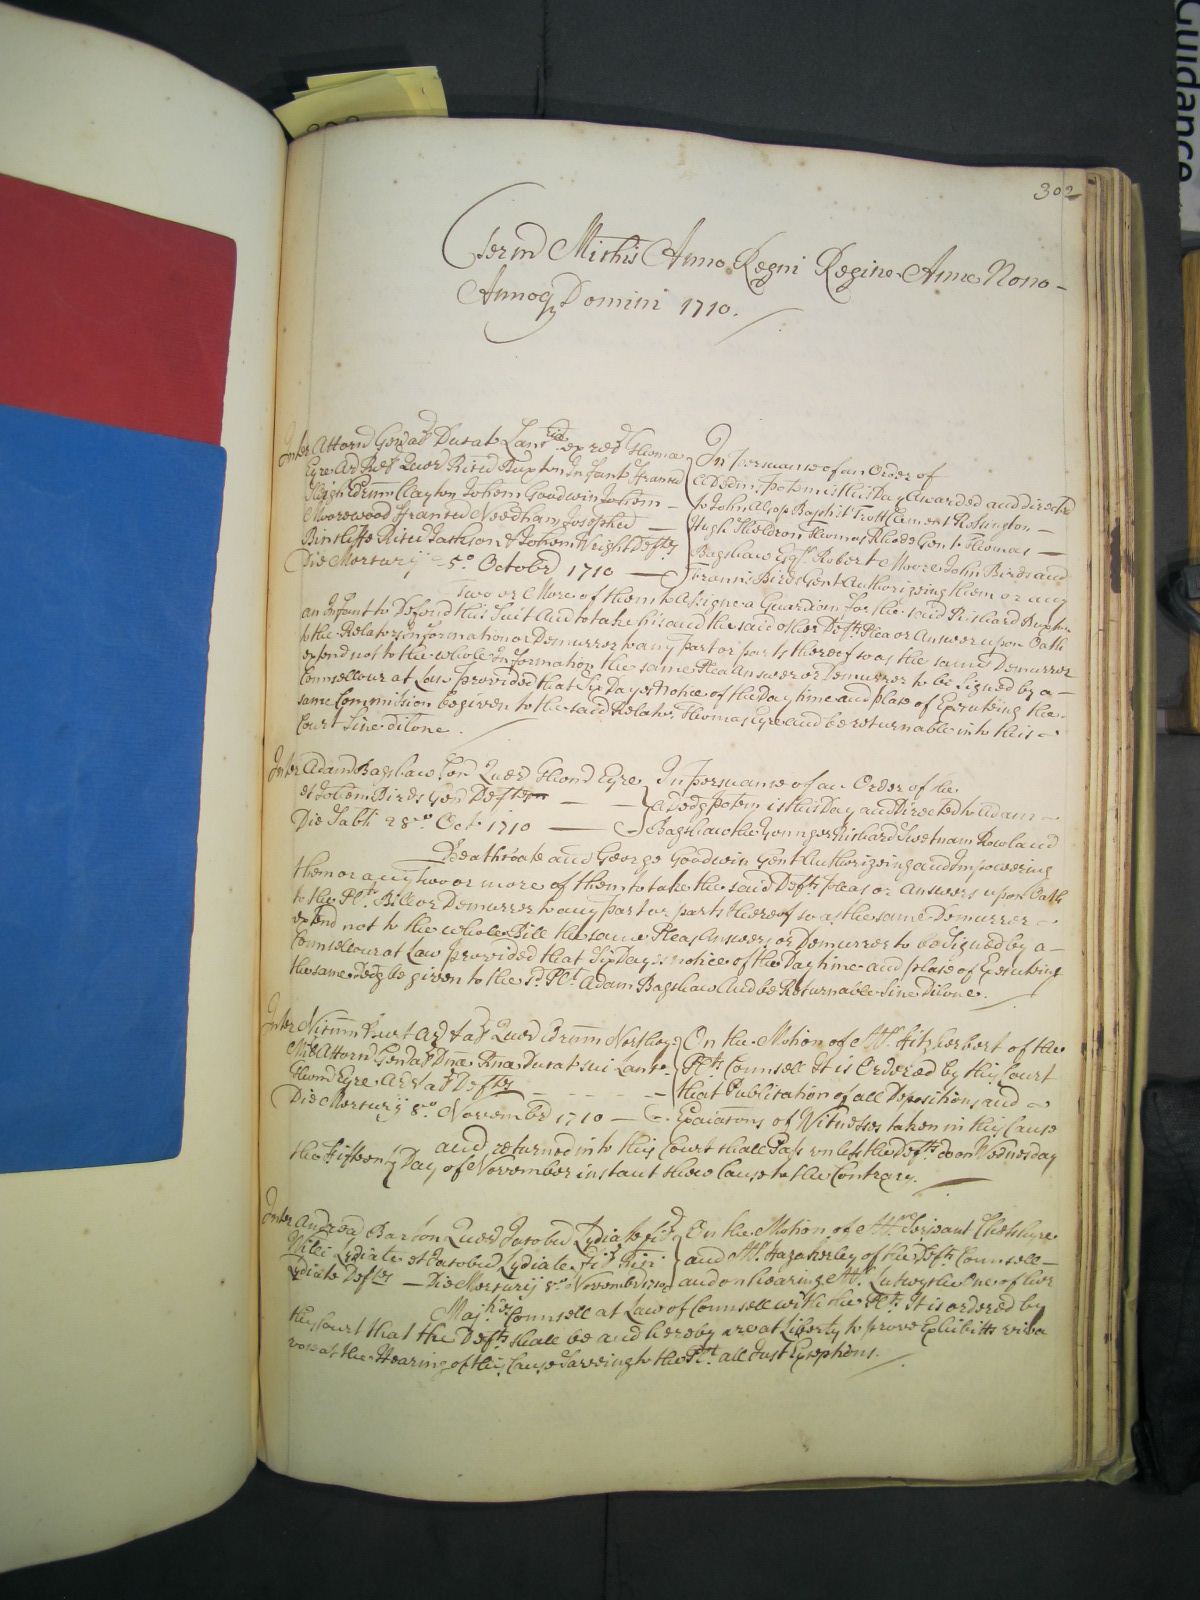 302
Term Michis Anno Regni Regine Anne Nono
Annoq Domini 1710.
Inter Attorn Genal Ducat Lanc ex rel Thome
Eyre Quer Ricu Buxton Infant Franc
Clayton Johem Goodwin Johem
Moorewood Francu Needham Josephu
Bincliffe Ricu Jackson & Johem Wright Defts
Die Mercurij 25o Octobr 1710
In Persuance of an Order of
a Dedm Potem is this Day Awarded and directed
to John Alsop Baptist Trott Clement Rossington
Hugh Sheldron Thomas Rhode Gent Thomas
Bagshaw Esqr Robert Moore John Birds and
Francis Birds Gent Authorizeing them or any
Two or More of them to Assigne a Guardian for the said Richard Buxton
an Infant to Defend this Suit And to take his and the said other Defts Plea or Answer upon Oath
to the Relators Information or Demurrer to any part or parts thereof so as the same Demurrer
extend not to the whole Information the same Plea Answer or Demurrer to be Signed by a
Counsellour at Law Provided that Six Dayes Notice of the Day time and place of Executing the
same Commission be given to the said Relator Thomas Eyre and be returnable into this
Court Sine dilone.
Inter Adam Bagshaw Quer Thom Eyre
et Johem Birds Gen Defts
Die Sabti 28o Oct 1710
In Persuance of an Order of the
a Dedg potem is this Day and Directed to Adam
Bagshaw the Younger Richard Swetnam Rowland
Heathcote and George Goodwin Gent Authorizeing and Impowering
them or any two or more of them to take the said Defts Pleas or Answers upon Oath
to the Plts Bill or Demurrer to any part or parts thereof so as the same Demurrer
extend not to the whole Bill the same Pleas Answers or Demurrer to be Signed by a
Counsellour at Law provided that Six Dayes notice of the Day time and place of Executing
the same Dedg be given to the sd Plt Adam Bagshaw And be Returnable Sine Dilone.
Inter Quer Edrum Northey
Mil Attorn Genal Dne Rne Ducat sui Lanc
Thom Eyre Ar & al Defts
Die Mercurij 8o Novembr 1710
On the Motion of Mr Fitzherbert of the
Plts Counsell It is Ordered by this Court
that Publication of all Depositions and
Exaiacons of Witnesses taken in this Cause
and returned into this Court shall Pass unless the Defts do on Wednesday
the Fifteenth Day of November instant shew Cause to the Contrary.
Inter Andrea Barton Quer Jacobu Lydiate fil
Willi Lydiate et Jacobu Lydiate fil
Lydiate Defts Die Mercurij 8o Novembr 1710
On the Motion of Mr Serjeant Cheshyre
and Mr Hazakerley of the Defts Counsell
and on hearing Mr Lutwyche One of her
Majties Counsell at Law of Counsell with the Plt It is ordered by
this Court that the Defts shall be and hereby are at Liberty to prove Exhibitts viva
voce at the Hearing of this Cause Saveing to the Plt all Just Exceptions.
Guidance